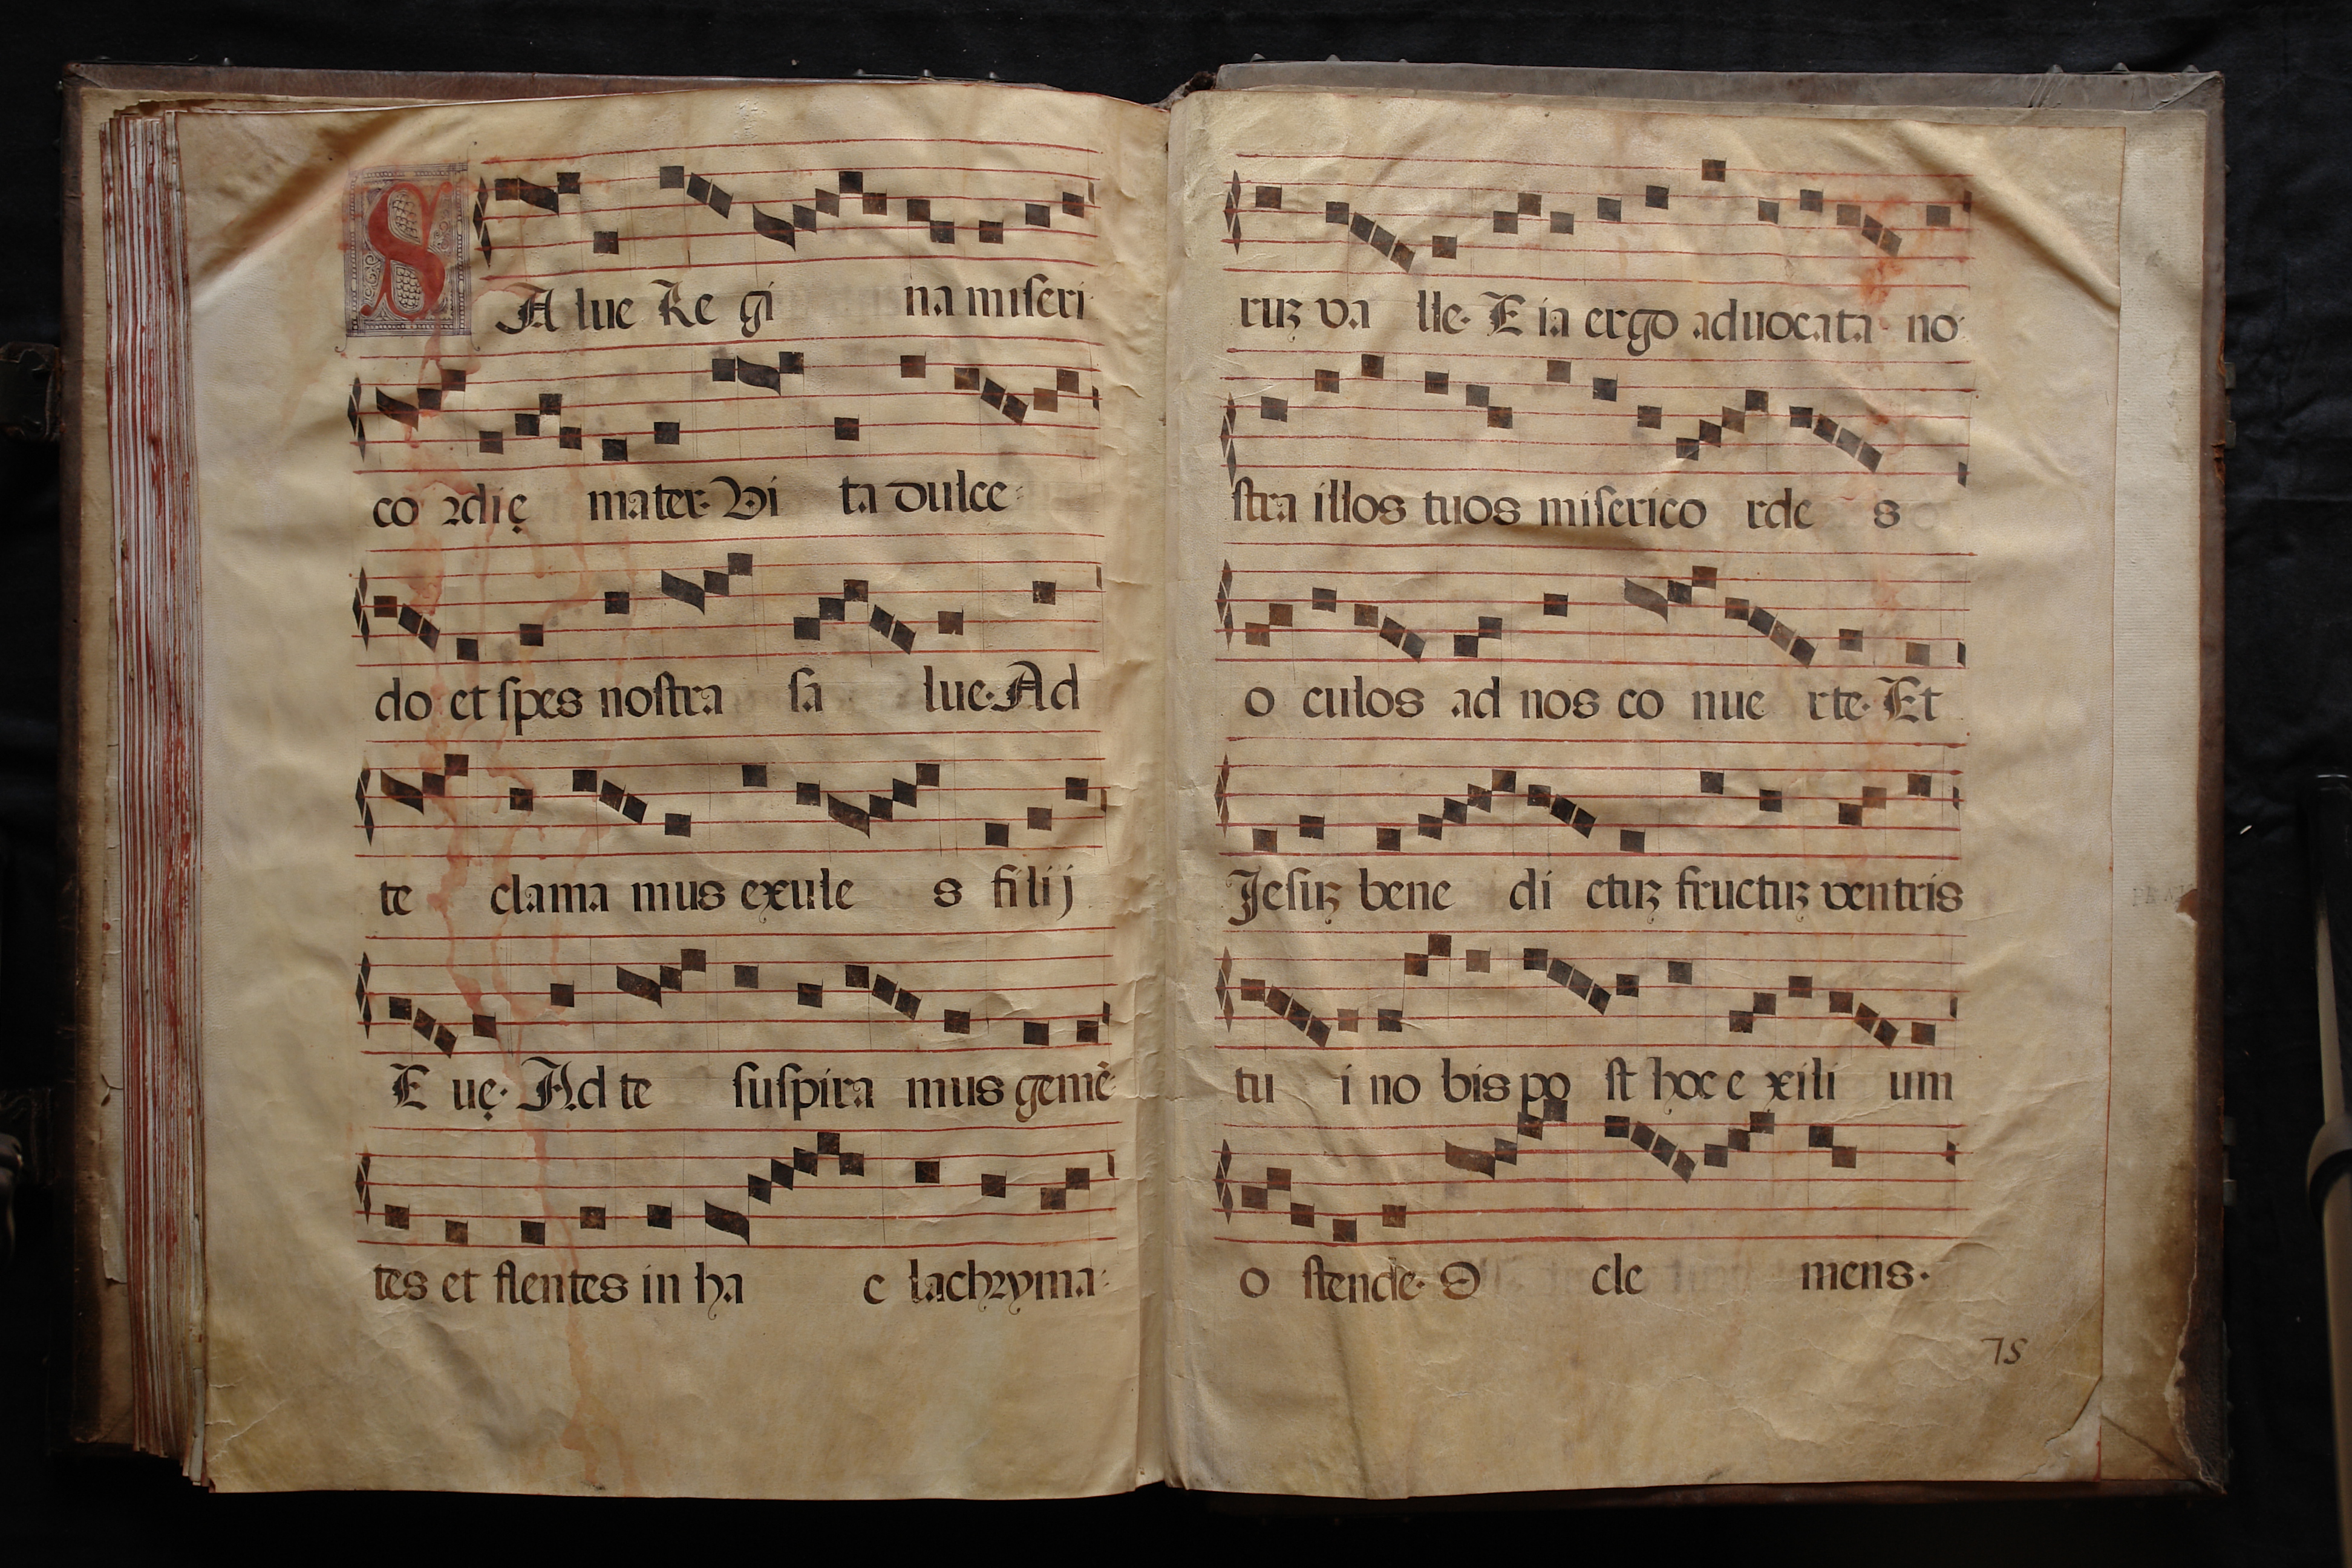 SAlue Re gi na miseri
co rdię mater. Vi ta dulce
do et spes nostra sa lue. Ad
te clama mus exule s filij
E uę. Ad te suspira mus gemē
tes et flentes in ha c lachryma
ruꝫ va lle. E ia ergo aduocata no
stra illos tuos miserico rde s
o culos ad nos co nue rte. Et
Jesuꝫ bene di ctuꝫ fructuꝫ ventris
tu i no bis po st hoc e xili um
o stende. O cle mens.